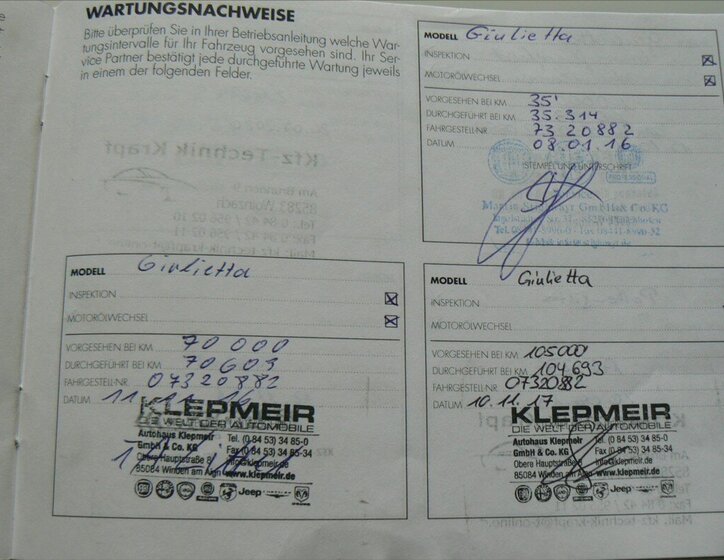 WARTUNGSNACHWEISE
Bitte überprüfen Sie in Ihrer Betriebsanleitung welche War-
tungsintervalle für Ihr Fahrzeug vorgesehen sind. Ihr Ser-
vice Partner bestätigt jede durchgeführte Wartung jeweils
in einem der folgenden Felder.
MODELL Giulietta
INSPEKTION
MOTORÖLWECHSEL
VORGESEHEN BEI KM 35'
DURCHGEFÜHRT BEI KM 35.314
FAHRGESTELL-NR. 7320882
DATUM 08.01.16
STEMPEL UND UNTERSCHRIFT
GmbH & Co. KG
MODELL Giulietta
INSPEKTION
MOTORÖLWECHSEL
VORGESEHEN BEI KM 70 000
DURCHGEFÜHRT BEI KM 70609
FAHRGESTELL-NR. 07320882
DATUM 11 16
KLEPMEIR
DIE WELT DER AUTOMOBILE
Autohaus Klepmeir Tel. (0 84 53) 34 85-0
GmbH & Co. KG Fax (0 84 53) 34 85-34
Obere Hauptstraße 8 info@klepmeir.de
85084 Winden am Aign www.klepmeir.de
Jeep
MODELL Giulietta
INSPEKTION
MOTORÖLWECHSEL
VORGESEHEN BEI KM 105000
DURCHGEFÜHRT BEI KM 104693
FAHRGESTELL-NR. 07320882
DATUM 10.11.17
KLEPMEIR
DIE WELT DER AUTOMOBILE
Autohaus Klepmeir Tel. (0 84 53) 34 85-0
GmbH & Co. KG Fax (0 84 53) 34 85-34
Obere Hauptstraße info@klepmeir.de
85084 Winden am Aign www.klepmeir.de
Jeep